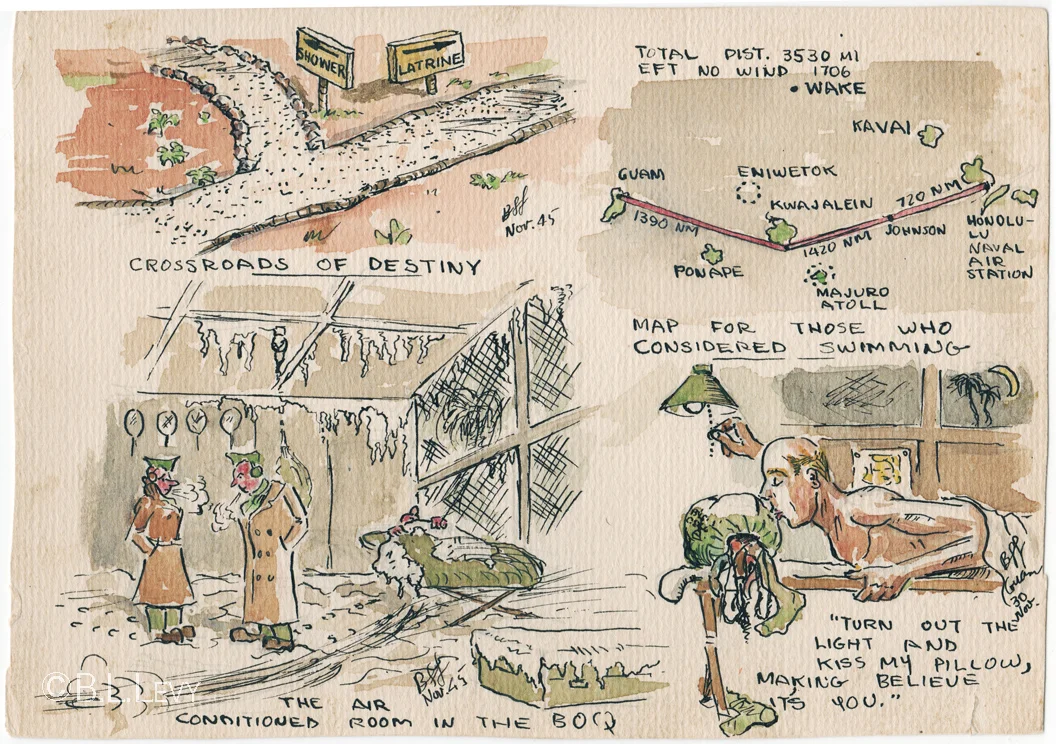 SHOWER
LATRINE
Nov. 45
CROSSROADS OF DESTINY
TOTAL DIST. 3530 MI
EFT NO WIND 1706
WAKE
KAVAI
GUAM
ENIWETOK
KWAJALEIN
720 NM
1390 NM
JOHNSON
1420 NM
HONOLU-
LU
NAVAL
AIR
STATION
PONAPE
MAJURO
ATOLL
MAP FOR THOSE WHO
CONSIDERED SWIMMING
Nov. 45
THE AIR
CONDITIONED ROOM IN THE BOQ
Guam
30
Nov.
"TURN OUT THE
LIGHT AND
KISS MY PILLOW,
MAKING BELIEVE
IT'S YOU."
© B.L.Levy